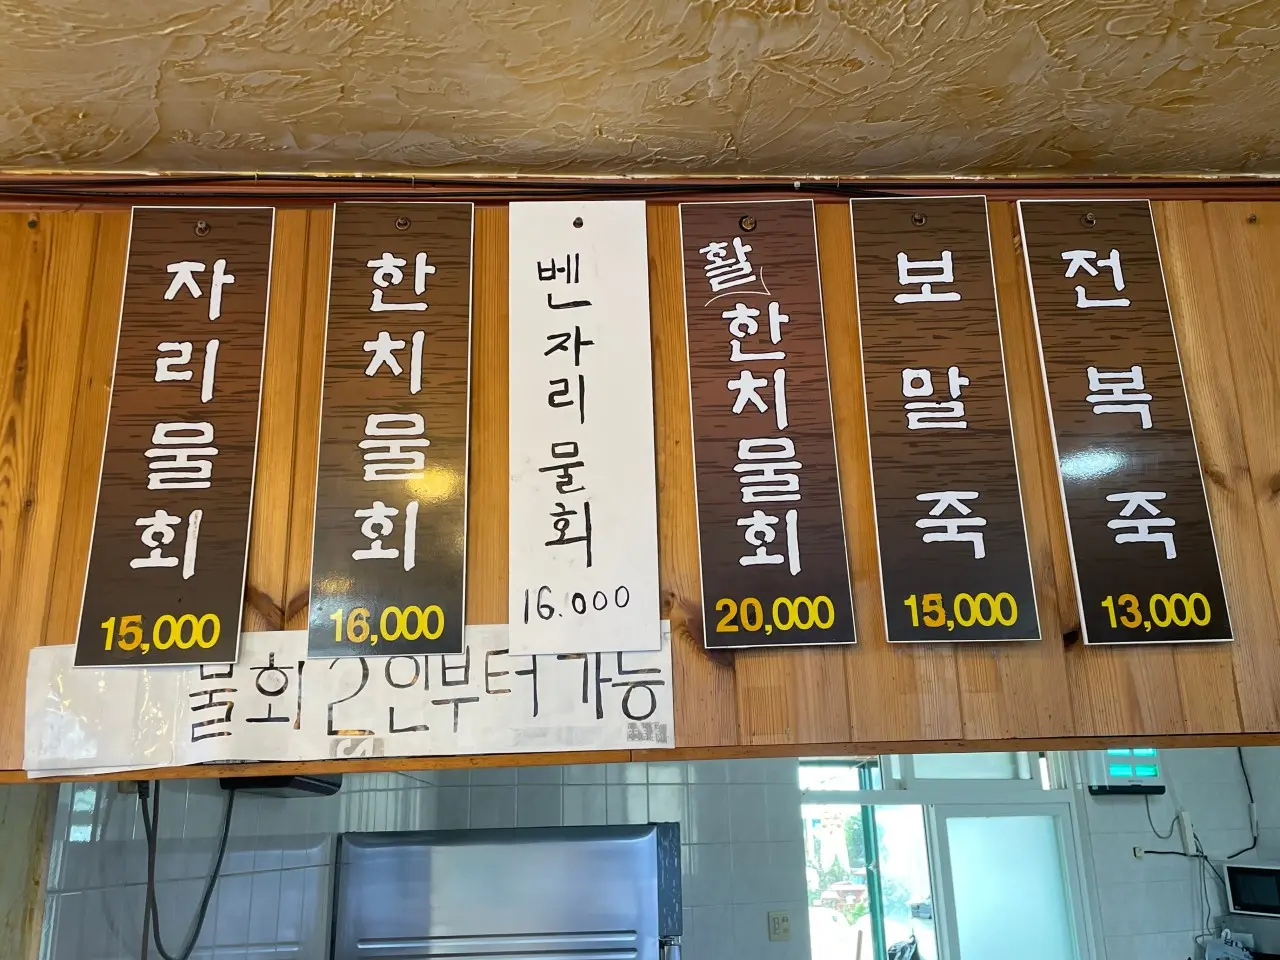 자리물회
15,000
한치물회
16,000
벤자리물회
16.000
활
한치물회
20,000
보말죽
15,000
전복죽
13,000
물회 2인부터 가능